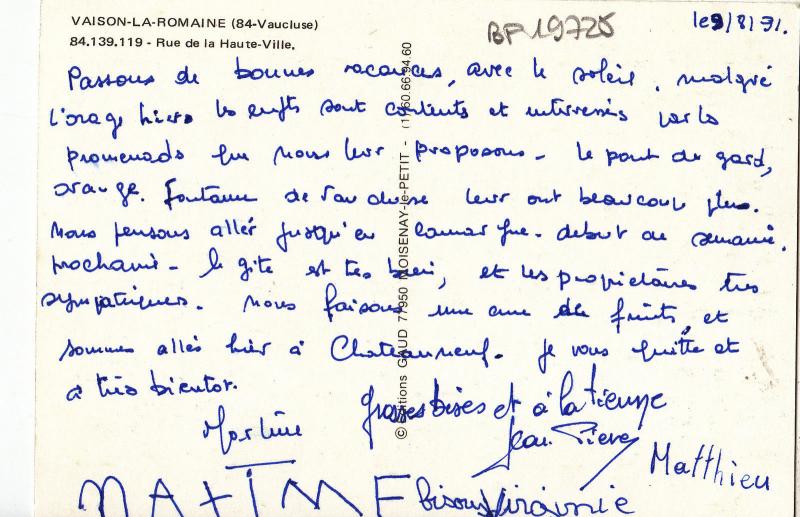 VAISON-LA-ROMAINE (84-Vaucluse)
84.139.119 - Rue de la Haute-Ville.
BF 19725
le 9/8/91.
Passons de bonnes vacances, avec le soleil, malgré
l'orage hier. les enfts sont contents et interressés par les
promenades que nous leur proposons - le pont du gard,
orange. Fontaine de Vaucluse leur ont beaucoup plu.
Nous pensons aller jusqu'en camargue. debut de semaine.
prochaine - le gite est tres bien, et les proprietaires tres
sympatiques. nous faisons une cure de fruits, et
sommes allés hier à Chateauneuf. je vous quitte et
à très bientot.
grosses bises et à la tienne
Martine
Jean Pierre
Matthieu
MAXIME
bisous Virginie
© Editions GAUD 77950 MOISENAY-le-PETIT - (1) 60.66.94.60